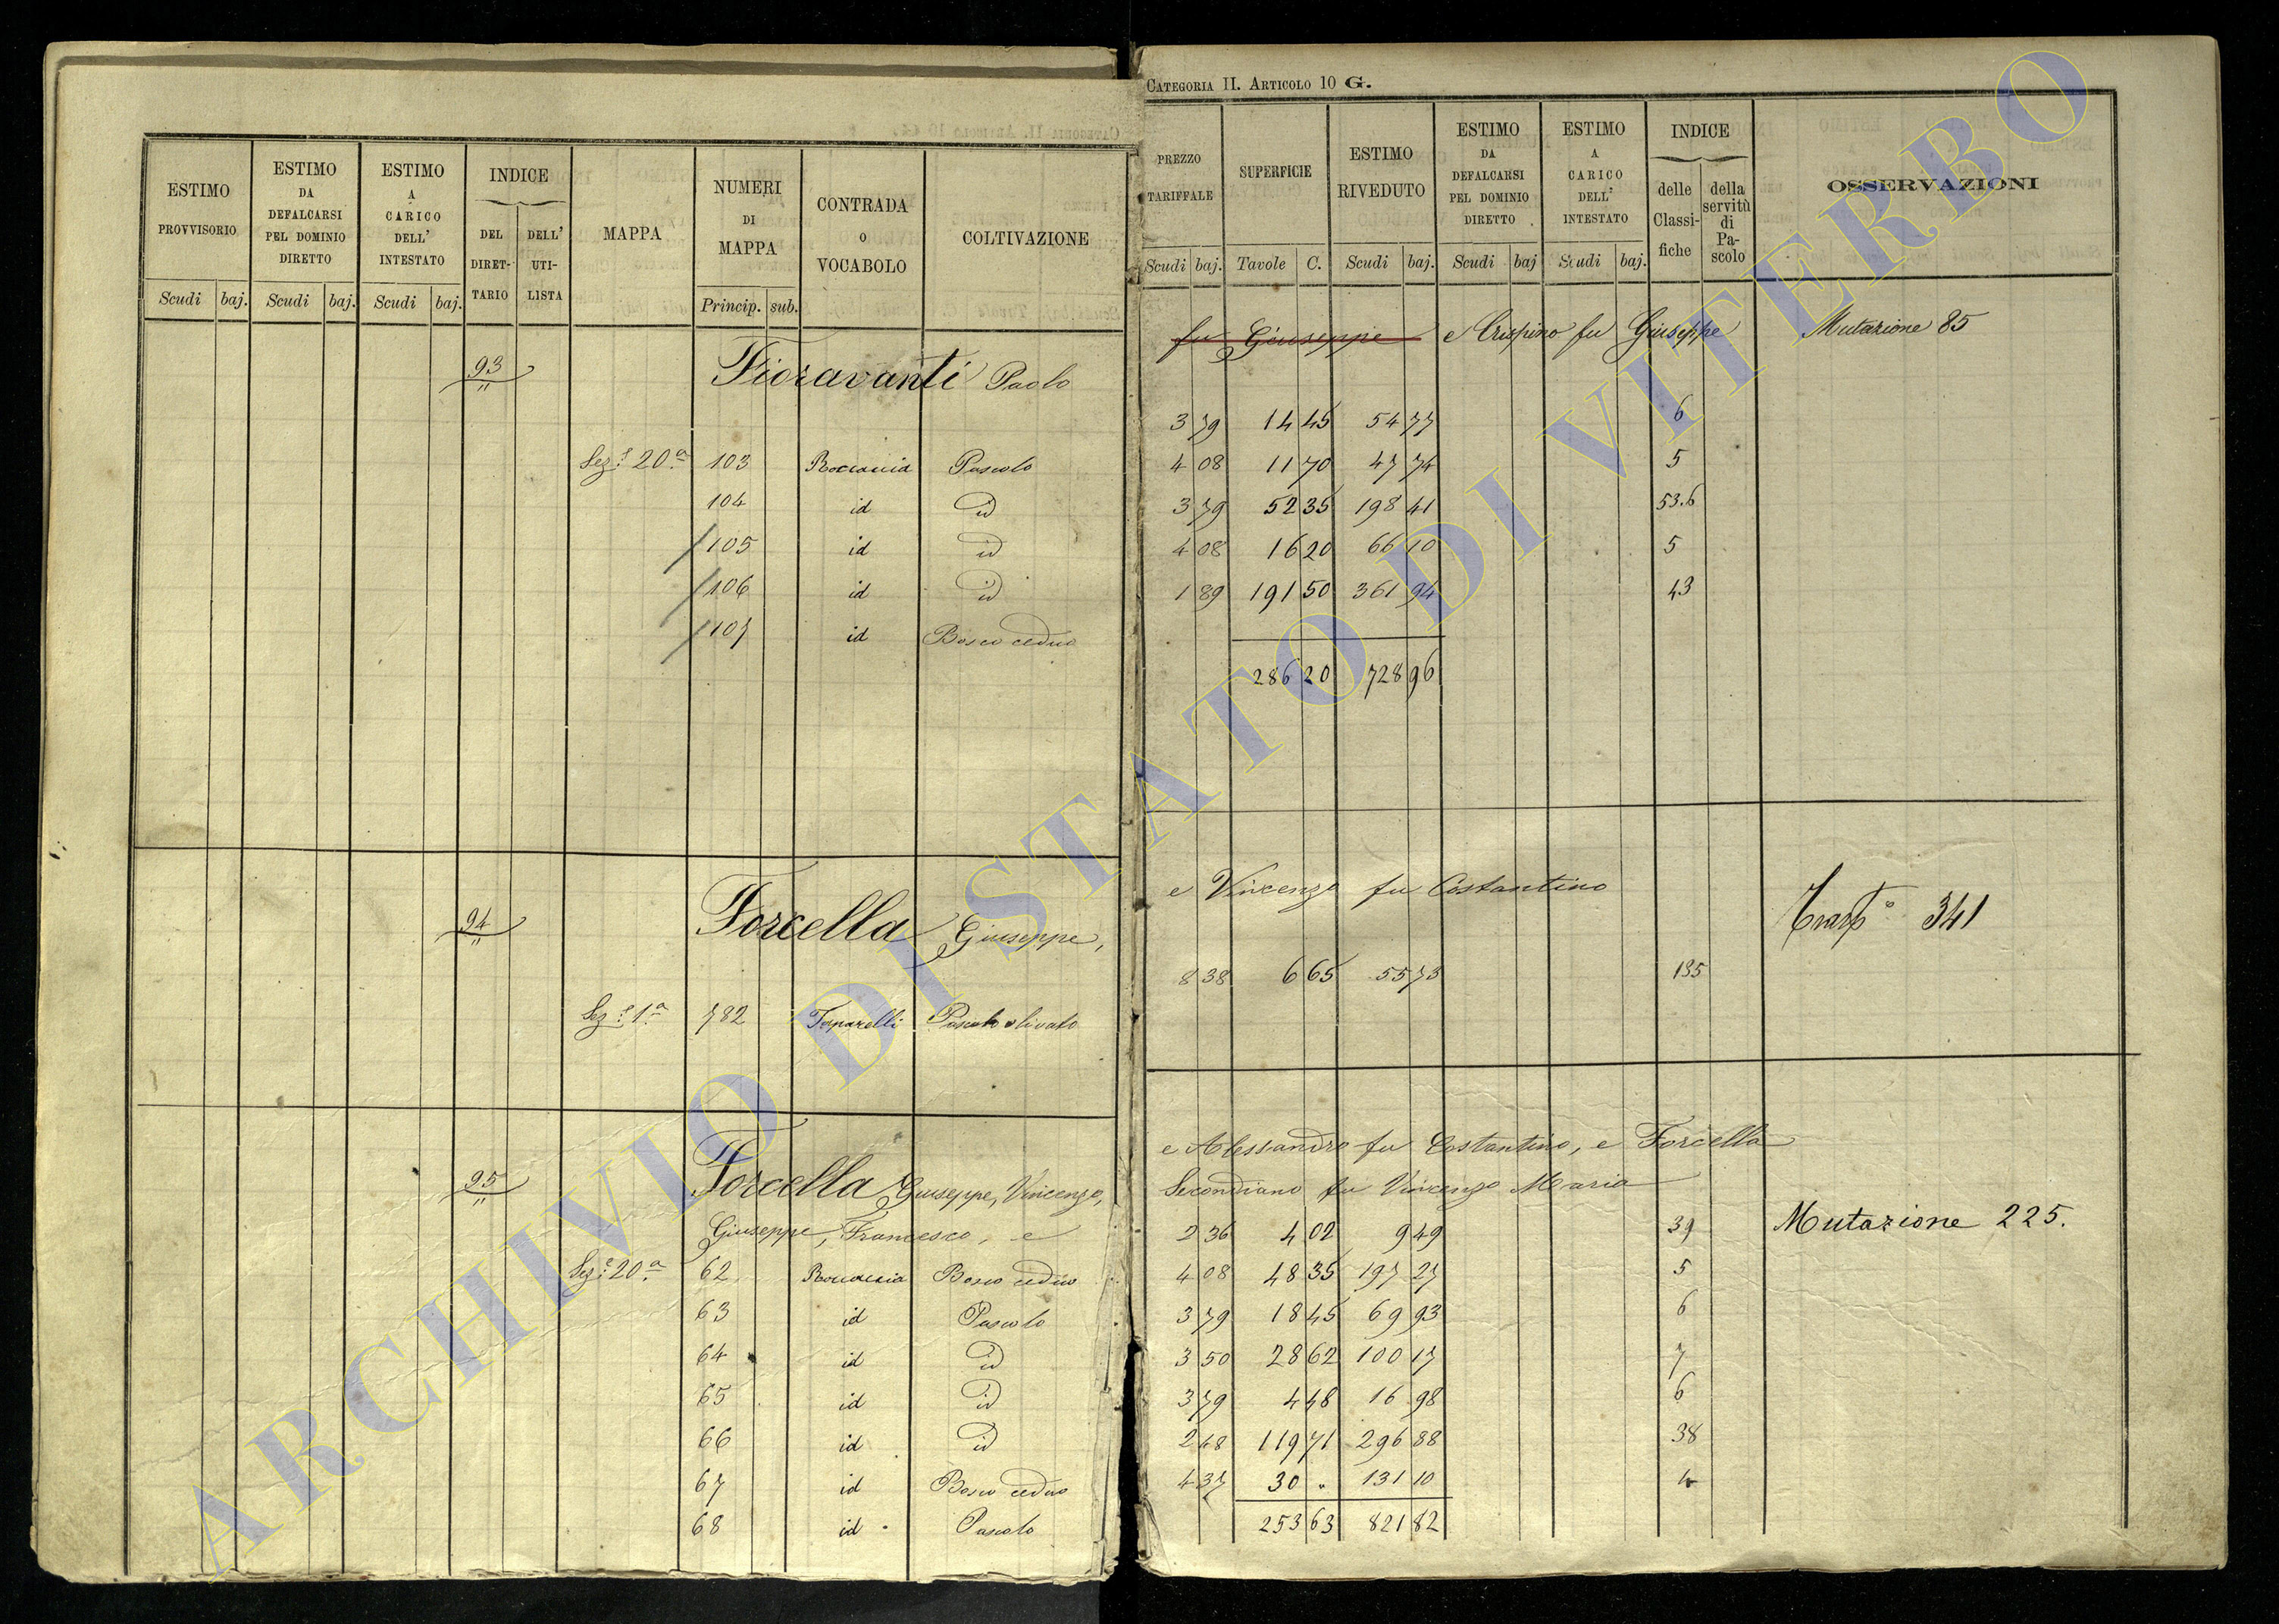 ESTIMO PROVVISORIO
ESTIMO DA DEFALCARSI PEL DOMINIO DIRETTO
ESTIMO A CARICO DELL' INTESTATO
INDICE
DEL DIRET-TARIO
DELL' UTI-LISTA
MAPPA
NUMERI DI MAPPA
CONTRADA O VOCABOLO
COLTIVAZIONE
Scudi baj. Scudi baj. Scudi baj. Princip. sub.
93 Fioravanti Paolo
Sez.e 20a 103 Pascolo
104 id id
105 id id
106 id id
107 id Bosco ceduo
94 Forcella Giuseppe,
Sez.e 1a 782 Pascolo olivato
95 Forcella Giuseppe, Vincenzo,
Giuseppe, Francesco, e
Sez.e 20a 62 Bosco ceduo
63 id Pascolo
64 id id
65 id id
66 id id
67 id Bosco ceduo
68 id Pascolo
CATEGORIA II. ARTICOLO 10 G.
PREZZO TARIFFALE
SUPERFICIE
ESTIMO RIVEDUTO
ESTIMO DA DEFALCARSI PEL DOMINIO DIRETTO
ESTIMO A CARICO DELL' INTESTATO
INDICE
delle Classi-fiche
della servitù di Pa-scolo
OSSERVAZIONI
Scudi baj. Tavole C. Scudi baj. Scudi baj Scudi baj.
fu Giuseppe e Crispino fu Giuseppe Mutazione 85
3 79 14 45 54 77 6
4 08 11 70 47 74 5
3 79 52 35 198 41 53.6
4 08 16 20 66 10 5
1 89 191 50 361 94 43
286 20 728 96
e Vincenzo fu Costantino
Trasp.o 341
8 38 6 65 55 73 135
e Alessandro fu Costantino, e Forcella
Secondiano fu Vincenzo Maria
Mutazione 225.
2 36 4 02 9 49 39
4 08 48 35 197 27 5
3 79 18 45 69 93 6
3 50 28 62 100 17 7
3 79 4 48 16 98 6
2 48 119 71 296 88 38
4 37 30 " 131 10 4
253 63 821 82
ARCHIVIO DI STATO DI VITERBO